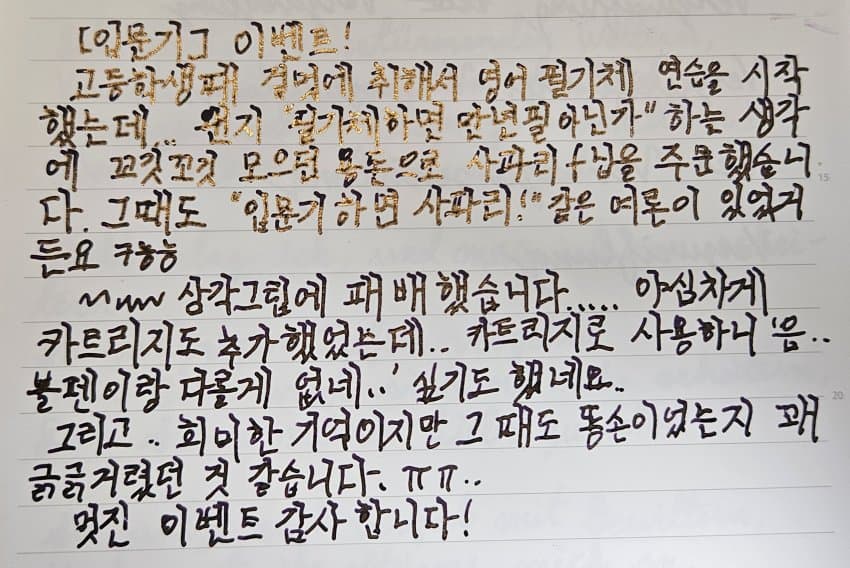 [입문기] 이벤트!
고등학생때 겉멋에 취해서 영어 필기체 연습을 시작
했는데... 왠지 "필기체하면 만년필아닌가" 하는 생각
에 꼬깃꼬깃 모으던 용돈으로 사파리 f닙을 주문했습니
15
다. 그때도 "입문기하면 사파리!" 같은 여론이 있었거
든요
삼각그립에 패배했습니다..... 야심차게
카트리지도 추가했었는데.. 카트리지로 사용하니 '음..
볼펜이랑 다를게 없네..' 싶기도 했네요..
20
그리고.. 희미한 기억이지만 그 때도 똥손이었는지 꽤
긁긁거렸던 것 같습니다. ㅠㅠ..
멋진 이벤트 감사합니다!